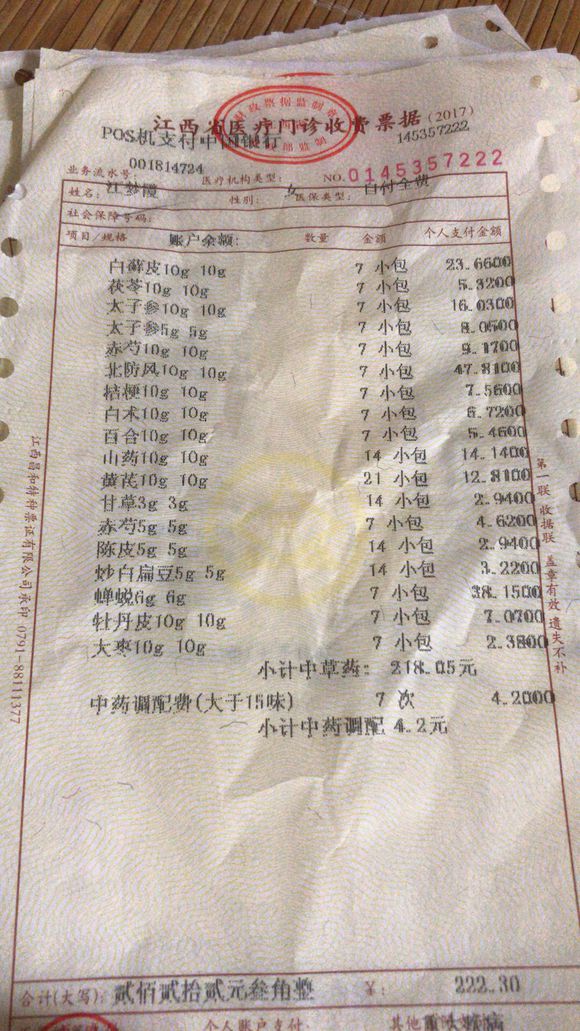 江西省医疗门诊收费票据(2017)
POS机支付中国银行 145357222
业务流水号: 001814724 医疗机构类型: NO.0145357222
姓名: 江梦霞 性别: 女 医保类型: 自付全费
社会保障号码:
项目/规格 账户余额: 数量 金额 个人支付金额
白藓皮10g 10g 7 小包 23.6600
茯苓10g 10g 7 小包 5.3200
太子参10g 10g 7 小包 16.0300
太子参5g 5g 7 小包 8.0500
赤芍10g 10g 7 小包 9.1700
北防风10g 10g 7 小包 47.8100
桔梗10g 10g 7 小包 7.5600
白术10g 10g 7 小包 6.7200
百合10g 10g 7 小包 5.4600
山药10g 10g 14 小包 14.1400
黄芪10g 10g 21 小包 12.8100
甘草3g 3g 14 小包 2.9400
赤芍5g 5g 7 小包 4.6200
陈皮5g 5g 14 小包 2.9400
炒白扁豆5g 5g 14 小包 3.2200
蝉蜕6g 6g 7 小包 38.1500
牡丹皮10g 10g 7 小包 7.0700
大枣10g 10g 7 小包 2.3800
小计中草药: 218.05元
中药调配费(大于15味) 7 次 4.2000
小计中药调配 4.2元
合计(大写): 贰佰贰拾贰元叁角整 ¥: 222.30
个人账户支付:
江西昌和特种票证有限公司承印 0791-88111377
第一联 收据联 盖章有效 遗失不补